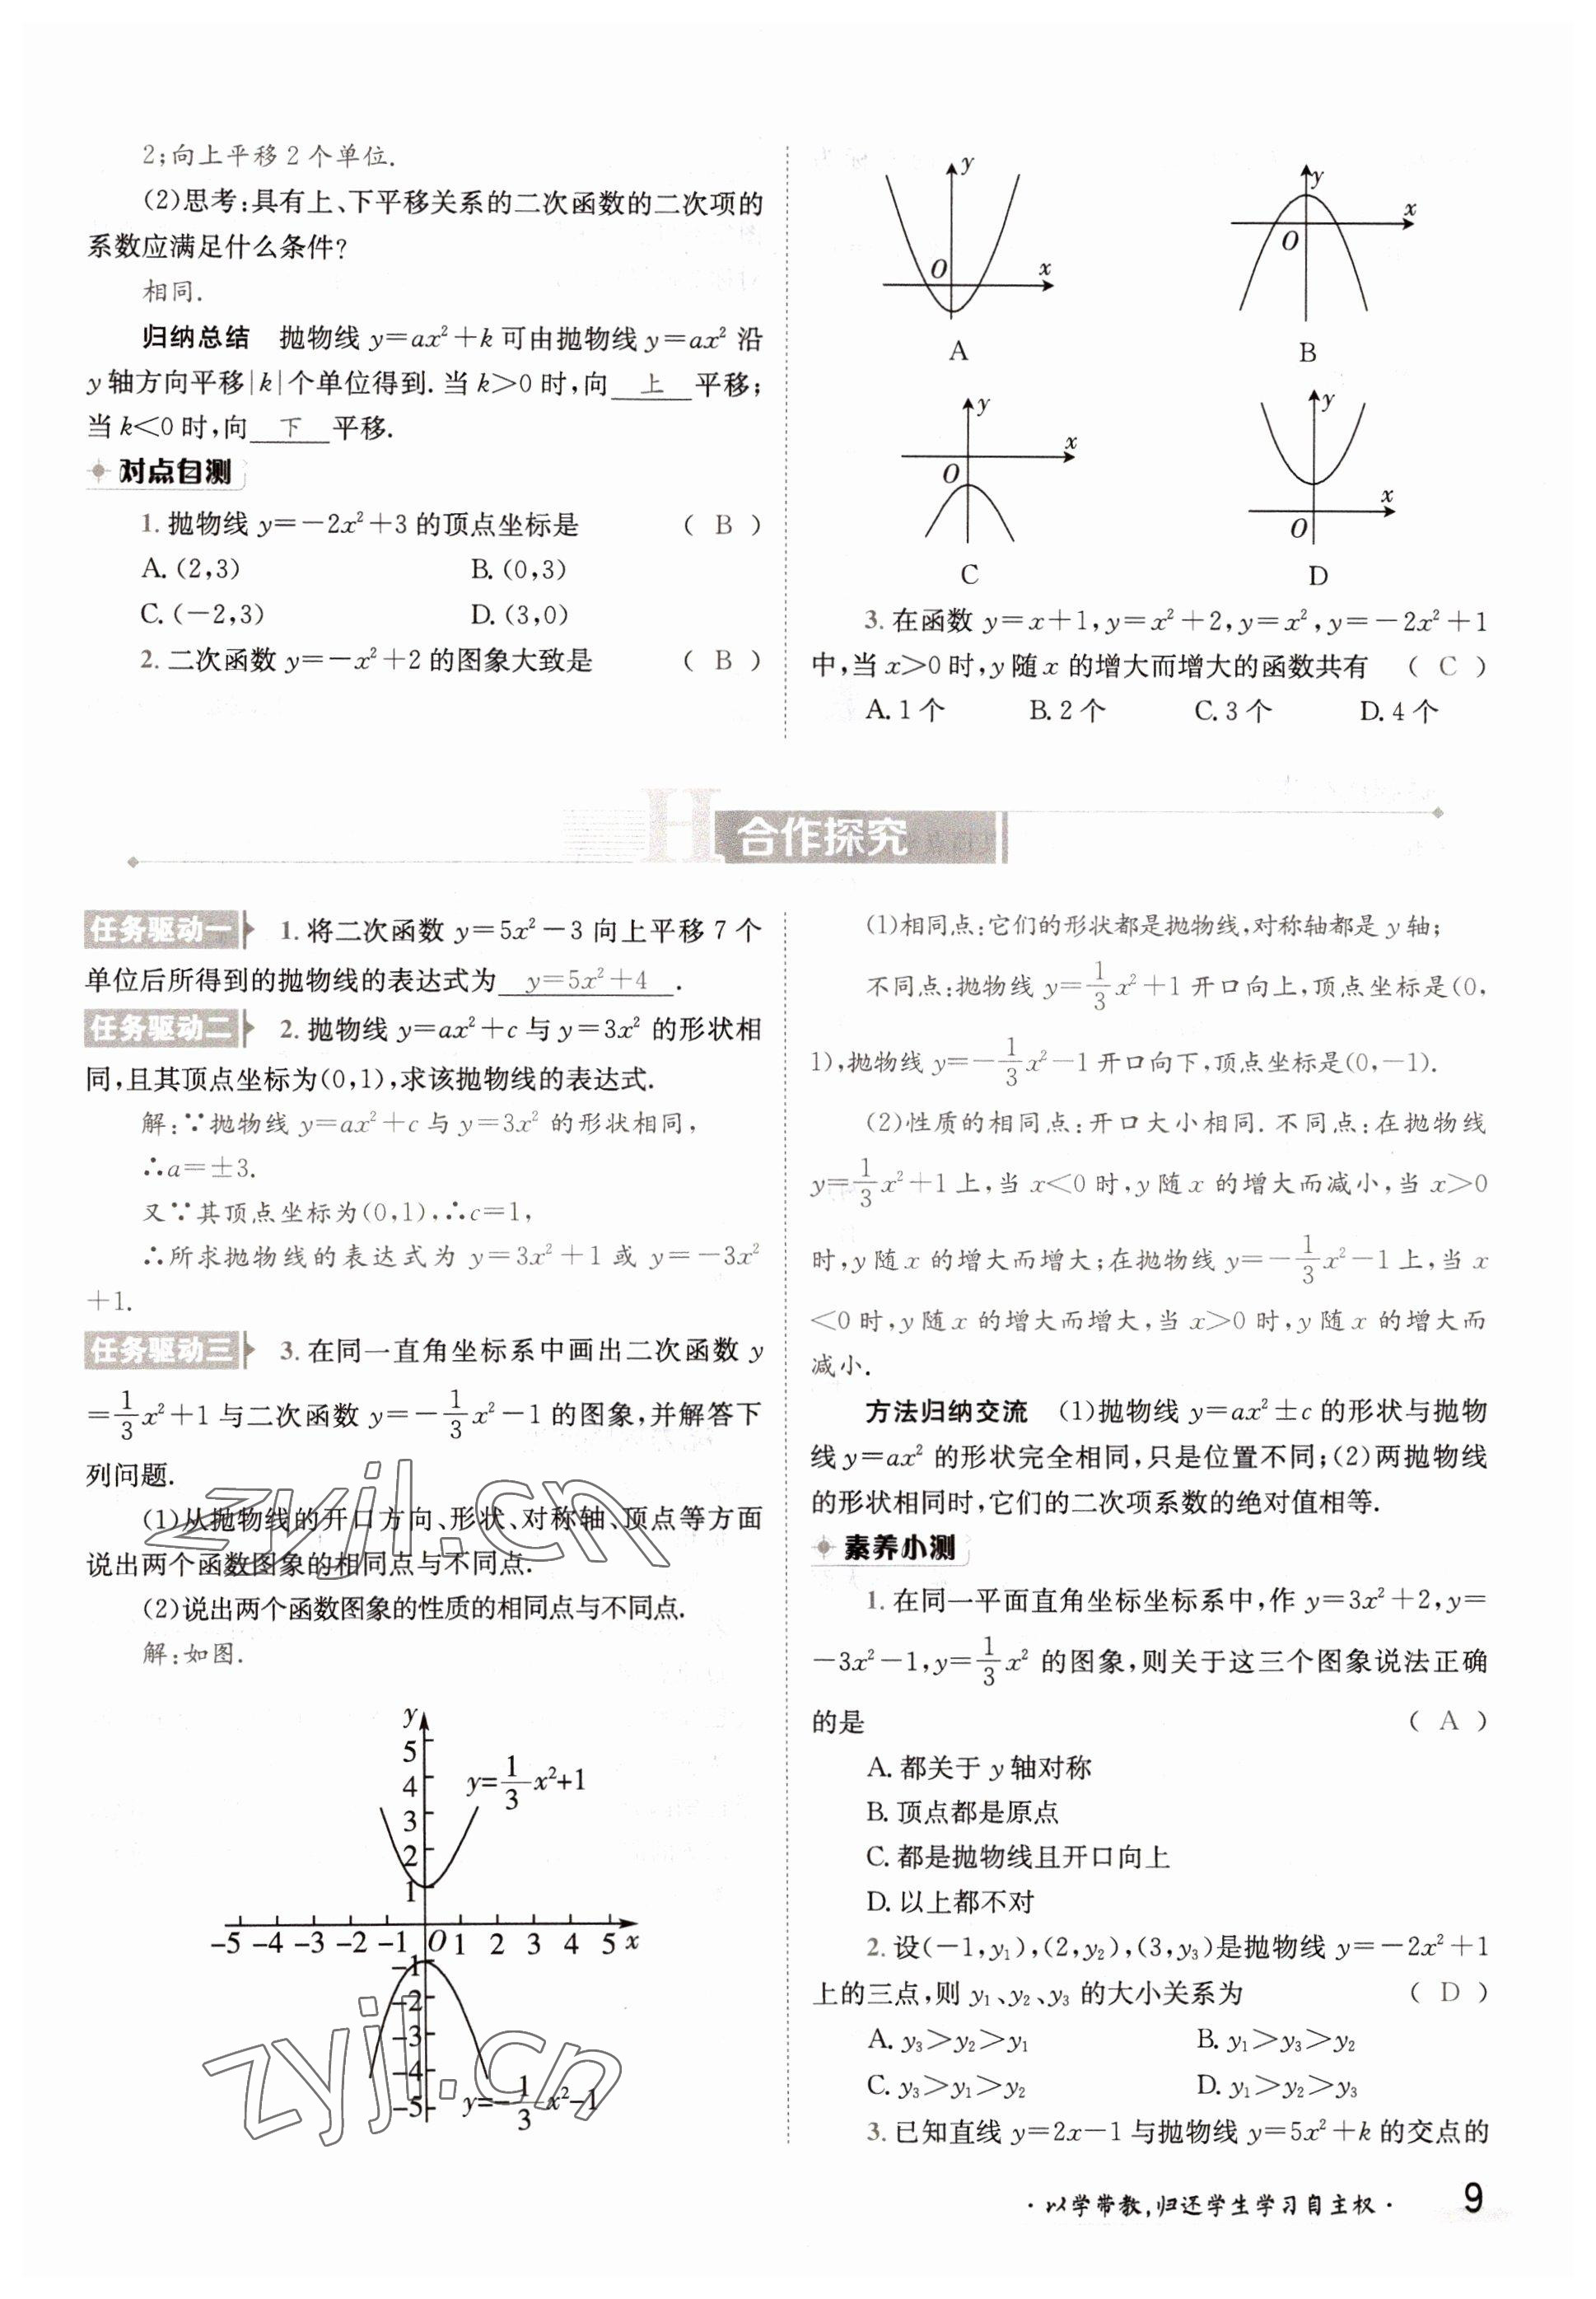 2;向上平移2个单位.
(2)思考:具有上、下平移关系的二次函数的二次项的
系数应满足什么条件?
相同.
归纳总结 抛物线 y=ax²+k 可由抛物线 y=ax² 沿
y 轴方向平移|k|个单位得到. 当 k>0 时,向 上 平移;
当 k<0 时,向 下 平移.
对点自测
1. 抛物线 y=-2x²+3 的顶点坐标是 ( B )
A. (2,3) B. (0,3)
C. (-2,3) D. (3,0)
2. 二次函数 y=-x²+2 的图象大致是 ( B )
y
O
x
A
y
x
O
B
y
x
O
C
y
x
O
D
3. 在函数 y=x+1,y=x²+2,y=x²,y=-2x²+1
中,当 x>0 时,y 随 x 的增大而增大的函数共有 ( C )
A. 1 个 B. 2 个 C. 3 个 D. 4 个
H 合作探究
任务驱动一 1. 将二次函数 y=5x²-3 向上平移 7 个
单位后所得到的抛物线的表达式为 y=5x²+4 .
任务驱动二 2. 抛物线 y=ax²+c 与 y=3x² 的形状相
同,且其顶点坐标为(0,1),求该抛物线的表达式.
解:∵抛物线 y=ax²+c 与 y=3x² 的形状相同,
∴a=±3.
又∵其顶点坐标为(0,1),∴c=1,
∴所求抛物线的表达式为 y=3x²+1 或 y=-3x²
+1.
任务驱动三 3. 在同一直角坐标系中画出二次函数 y
=1/3x²+1 与二次函数 y=-1/3x²-1 的图象,并解答下
列问题.
(1)从抛物线的开口方向、形状、对称轴、顶点等方面
说出两个函数图象的相同点与不同点.
(2)说出两个函数图象的性质的相同点与不同点.
解:如图.
y
5
4
3
2
1
y=1/3x²+1
-5 -4 -3 -2 -1 O 1 2 3 4 5 x
-1
-2
-3
-4
-5
y=-1/3x²-1
(1)相同点:它们的形状都是抛物线,对称轴都是 y 轴;
不同点:抛物线 y=1/3x²+1 开口向上,顶点坐标是(0,
1),抛物线 y=-1/3x²-1 开口向下,顶点坐标是(0,-1).
(2)性质的相同点:开口大小相同. 不同点:在抛物线
y=1/3x²+1 上,当 x<0 时,y 随 x 的增大而减小,当 x>0
时,y 随 x 的增大而增大;在抛物线 y=-1/3x²-1 上,当 x
<0 时,y 随 x 的增大而增大,当 x>0 时,y 随 x 的增大而
减小.
方法归纳交流 (1)抛物线 y=ax²±c 的形状与抛物
线 y=ax² 的形状完全相同,只是位置不同;(2)两抛物线
的形状相同时,它们的二次项系数的绝对值相等.
素养小测
1. 在同一平面直角坐标坐标系中,作 y=3x²+2,y=
-3x²-1,y=1/3x² 的图象,则关于这三个图象说法正确
的是 ( A )
A. 都关于 y 轴对称
B. 顶点都是原点
C. 都是抛物线且开口向上
D. 以上都不对
2. 设(-1,y₁),(2,y₂),(3,y₃)是抛物线 y=-2x²+1
上的三点,则 y₁、y₂、y₃ 的大小关系为 ( D )
A. y₃>y₂>y₁ B. y₁>y₃>y₂
C. y₃>y₁>y₂ D. y₁>y₂>y₃
3. 已知直线 y=2x-1 与抛物线 y=5x²+k 的交点的
·以学带教,归还学生学习自主权· 9
zyjl.cn
zyjl.cn